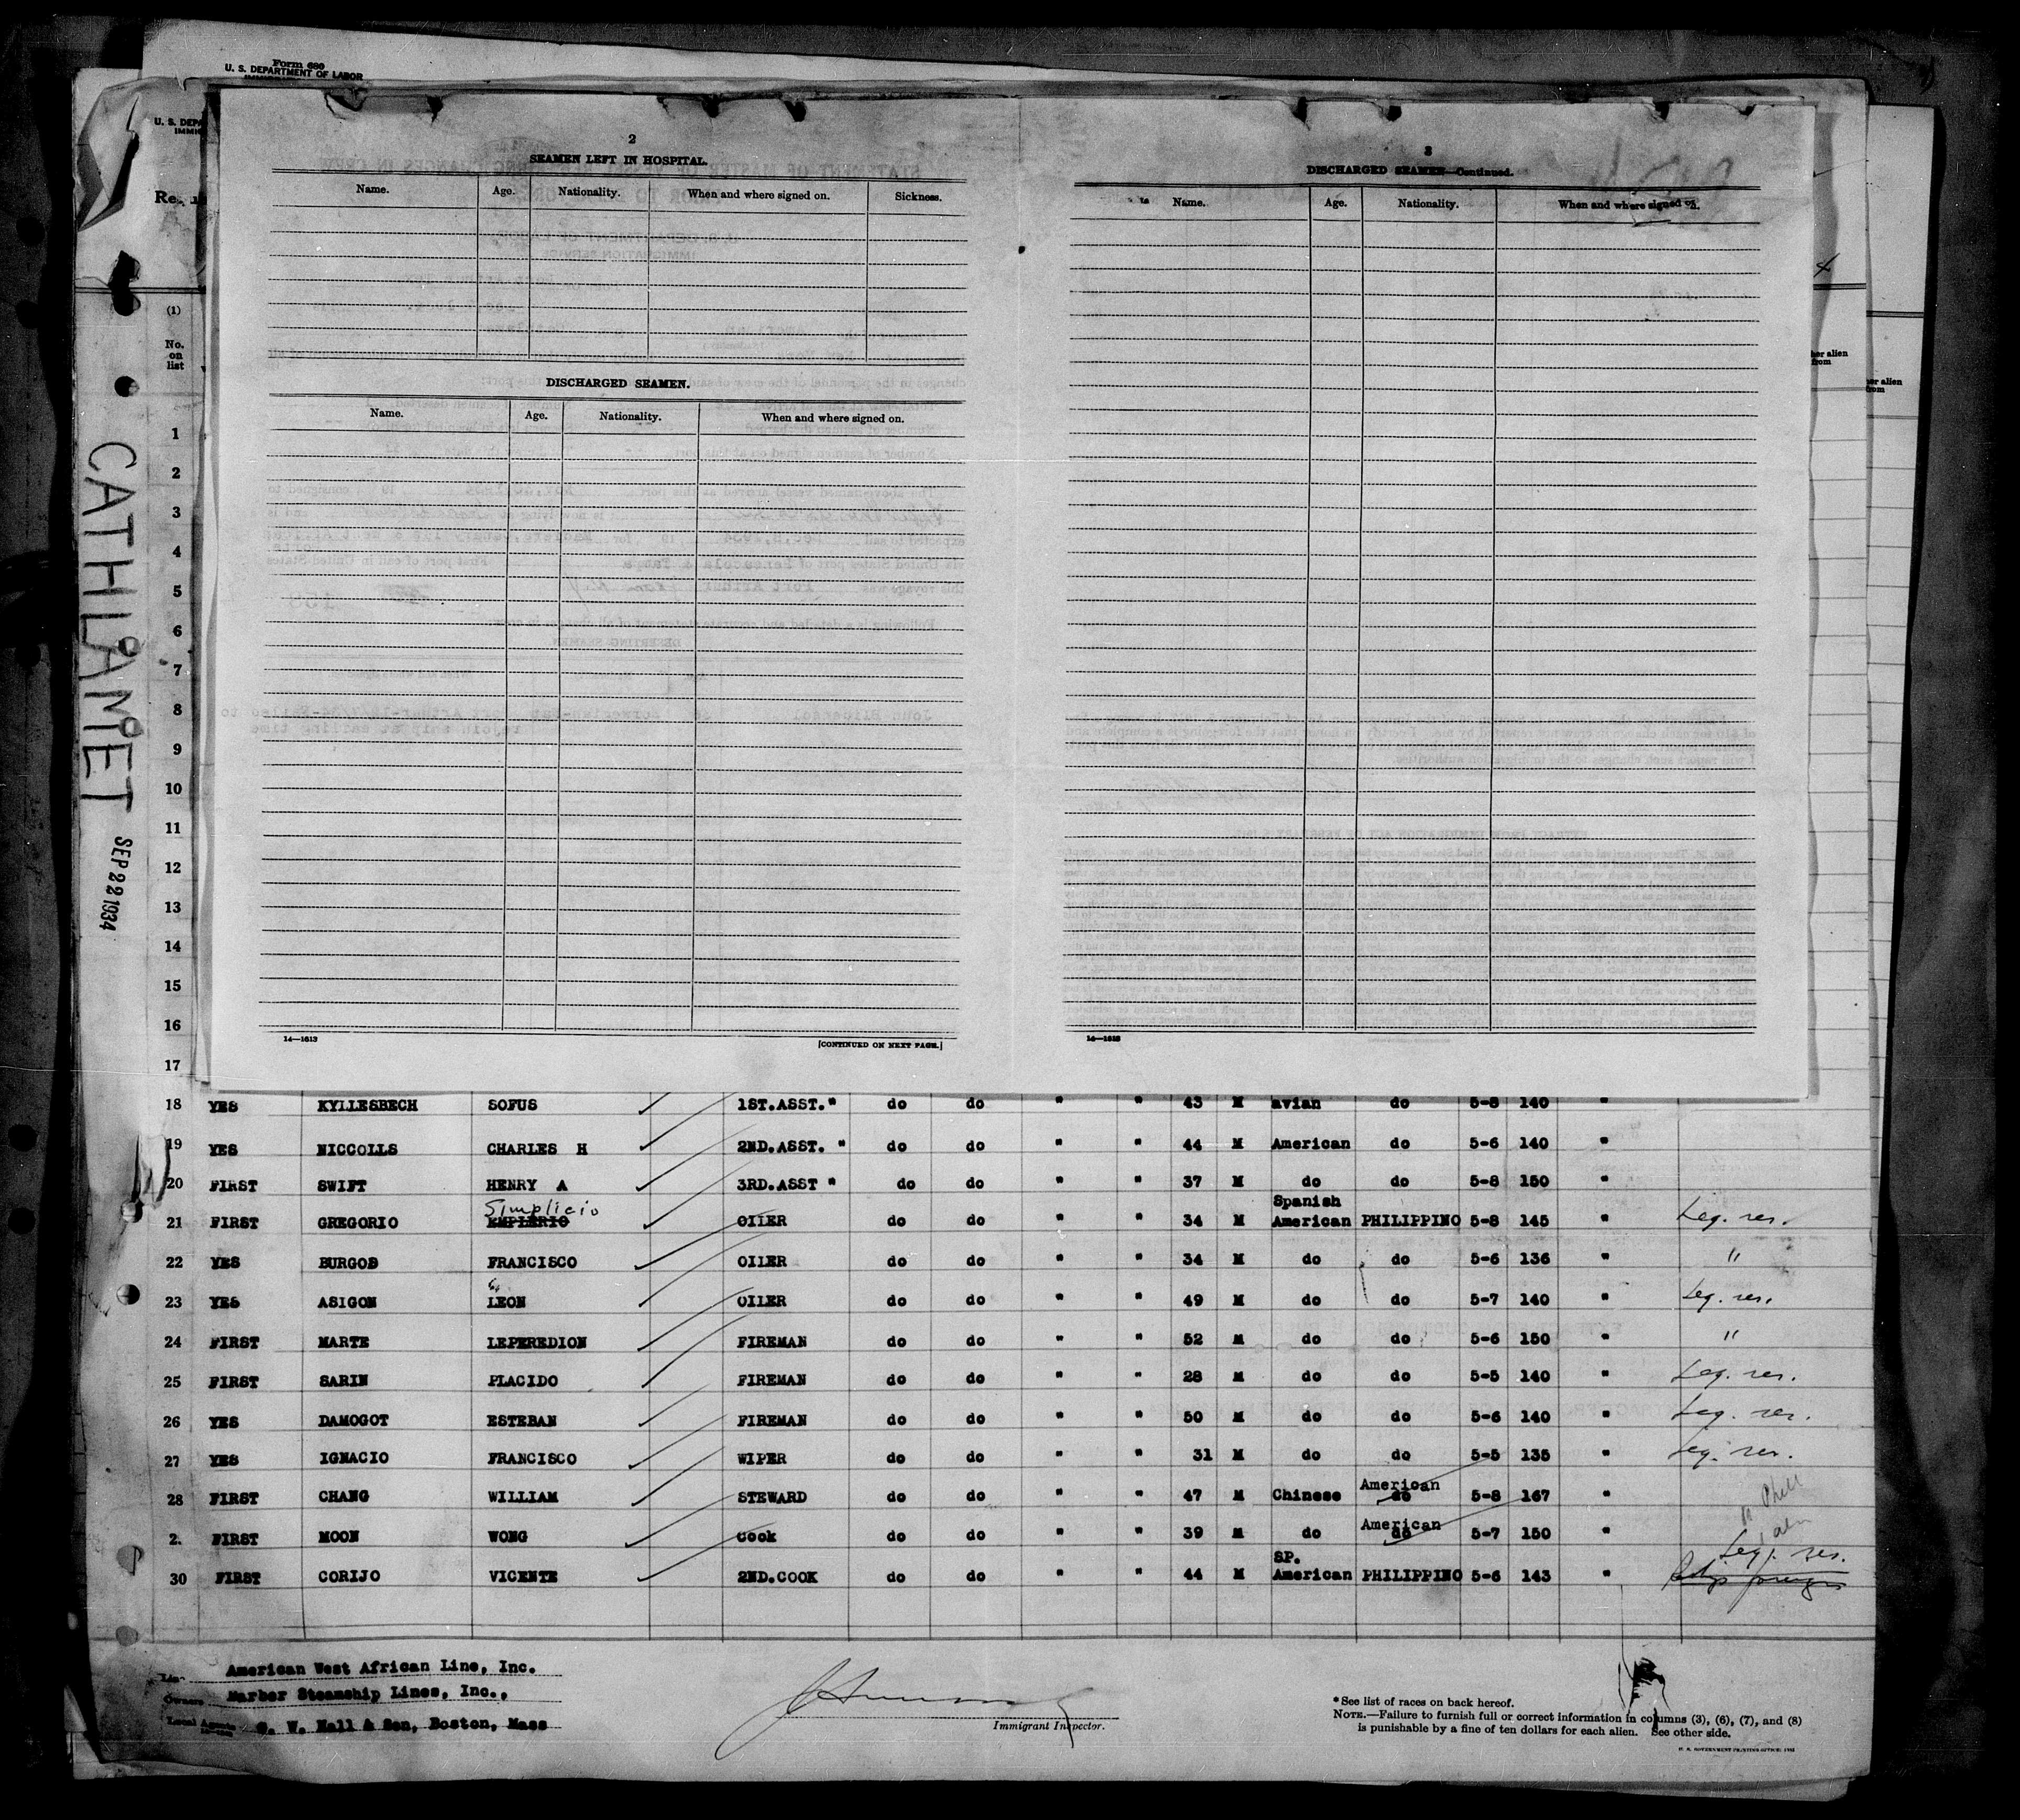 Form 680
U. S. DEPARTMENT OF LABOR
U. S. DEPA
IMMIG
(1)
No.
on
list
CATHLAMET
SEP 22 1934
2
SEAMEN LEFT IN HOSPITAL.
Name. Age. Nationality. When and where signed on. Sickness.
DISCHARGED SEAMEN.
Name. Age. Nationality. When and where signed on.
14—1613
[CONTINUED ON NEXT PAGE.]
3
DISCHARGED SEAMEN—Continued.
Name. Age. Nationality. When and where signed on.
14—1613
her alien
from
her alien
from
1
2
3
4
5
6
7
8
9
10
11
12
13
14
15
16
17
18 YES KYLLESBECH SOFUS 1ST.ASST." do do " " 43 M avian do 5-8 140 "
19 YES NICCOLLS CHARLES H 2ND.ASST. " do do " " 44 M American do 5-6 140 "
20 FIRST SWIFT HENRY A 3RD.ASST " do do " " 37 M do do 5-8 150 "
Simplicio Spanish
21 FIRST GREGORIO EMPLERIO OILER do do " " 34 M American PHILIPPINO 5-8 145 " Leg. res.
22 YES BURGOS FRANCISCO OILER do do " " 34 M do do 5-6 136 " "
23 YES ASIGON LEON OILER do do " " 49 M do do 5-7 140 " Leg. res.
24 FIRST MARTE LEPEREDION FIREMAN do do " " 52 M do do 5-6 150 " "
25 FIRST SARIN PLACIDO FIREMAN do do " " 28 M do do 5-5 140 " Leg. res.
26 YES DAMOGOT ESTEBAN FIREMAN do do " " 50 M do do 5-6 140 " Leg. res.
27 YES IGNACIO FRANCISCO WIPER do do " " 31 M do do 5-5 135 " Leg. res.
American
28 FIRST CHANG WILLIAM STEWARD do do " " 47 M Chinese do 5-8 167 "
American
2. FIRST MOON WONG Cook do do " " 39 M do do 5-7 150 "
SP. Leg. res.
30 FIRST CORIJO VICENTE 2ND.COOK do do " " 44 M American PHILIPPINO 5-6 143 "
American West African Line, Inc.
Owners Barber Steamship Lines, Inc.,
Local Agents C. W. Hall & Son, Boston, Mass
Immigrant Inspector.
*See list of races on back hereof.
NOTE.—Failure to furnish full or correct information in columns (3), (6), (7), and (8)
is punishable by a fine of ten dollars for each alien. See other side.
U. S. GOVERNMENT PRINTING OFFICE: 1933